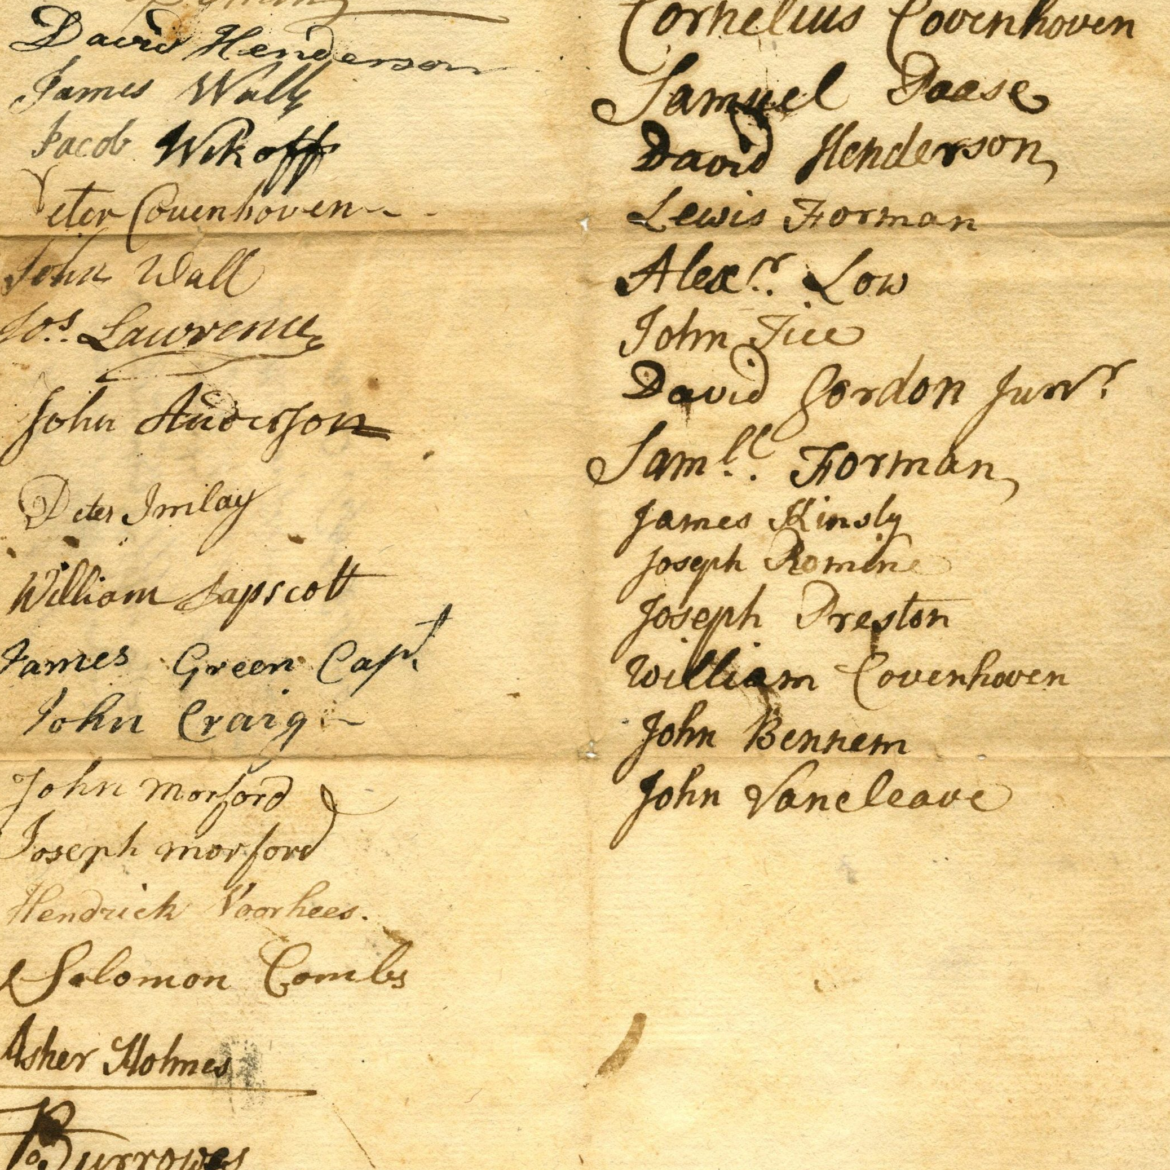 David Henderson
James Wall
Jacob Wikoff
Peter Covenhoven
John Wall
Jos. Lawrence
John Anderson
Peter Imlay
William Tapscott
James Green Capt
John Craig
John morford
Joseph morford
Hendrick Voorhees.
Solomon Combs
Asher Holmes
Burrowes
Cornelius Covenhoven
Samuel Pease
David Henderson,
Lewis Forman
Alexr. Low
John Tice
David Gordon Junr.
Samll. Forman,
James Kinsly
Joseph Romine
Joseph Preston
William Covenhoven
John Bennem
John Vancleave